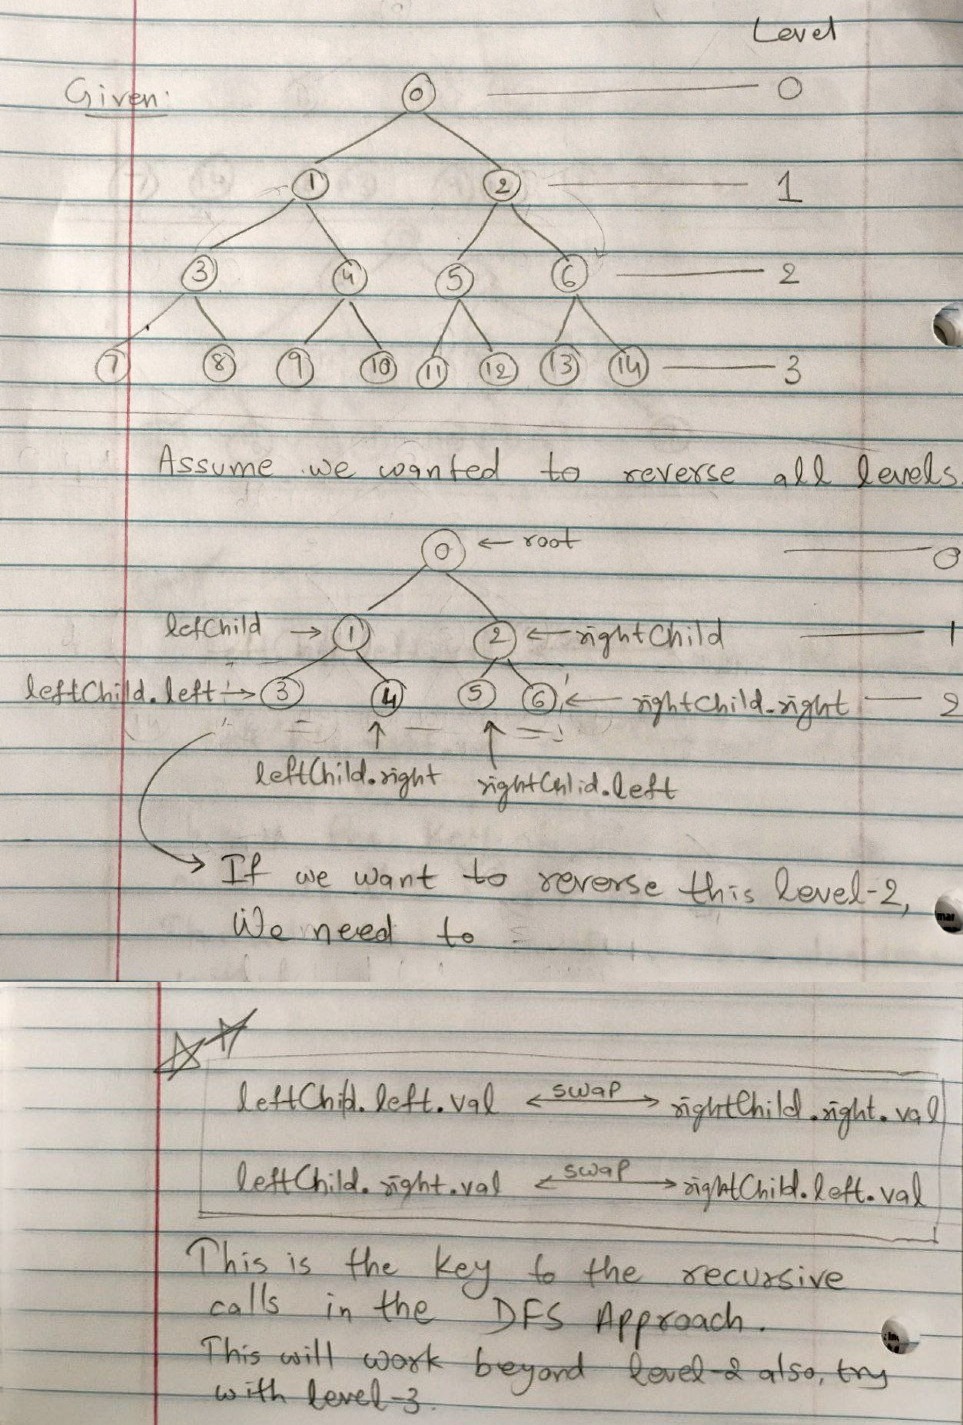 Level
Given:
0 0
1 2 1
3 4 5 6 2
7 8 9 10 11 12 13 14 3
Assume we wanted to reverse all levels.
0 ← root 0
lefChild → 1 2 ← rightChild 1
leftChild.left → 3 4 5 6 ← rightChild.right 2
leftChild.right rightChlid.left
If we want to reverse this level-2,
We need to
leftChild.left.val ← swap → rightChild.right.val
leftChild.right.val ← swap → rightChild.left.val
This is the key to the recursive
calls in the DFS Approach.
This will work beyond level-2 also, try
with level-3.